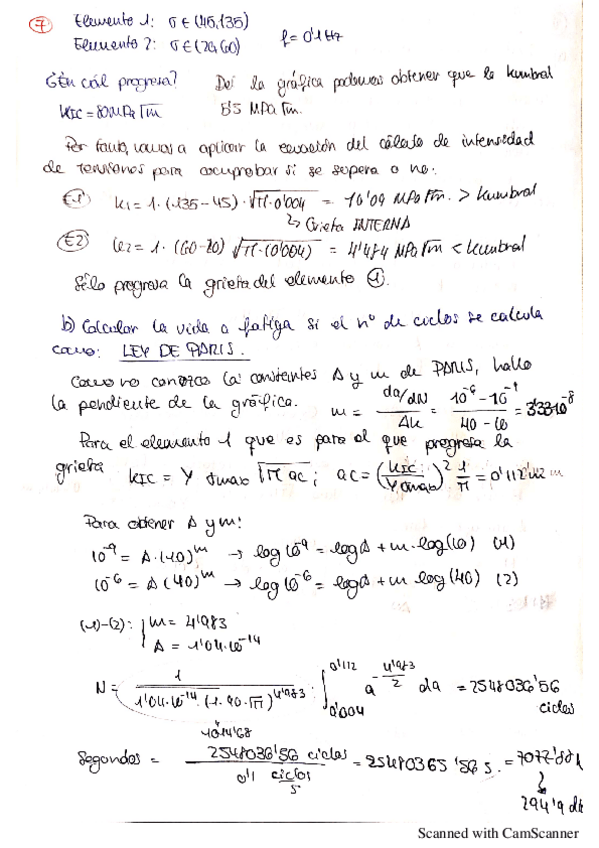 7) Elemento 1: σ ∈ (45,135)
Elemento 2: σ ∈ (20,60) f = 0'1 Hz
¿En cuál progresa? De la gráfica podemos obtener que le Kumbral
KIC = 80 MPa √m 5'5 MPa √m.
Por tanto, vamos a aplicar la ecuación del cálculo de intensidad
de tensiones para comprobar si se supera o no.
E1 K1 = 1 · (135 - 45) · √π · 0'004 = 10'09 MPa √m. > Kumbral
↳ Grieta INTERNA
E2 K2 = 1 · (60-20) √π · (0'004) = 4'484 MPa √m < Kumbral
Sólo progresa la grieta del elemento 1.
b) Calcular la vida a fatiga si el nº de ciclos se calcula
como: LEY DE PARIS.
Como no conozco las constantes A y m de PARIS, hallo
la pendiente de la gráfica. m = da/dN / Δk = 10^-6 - 10^-9 / 40 - 10 = 3'33·10^-8
Para el elemento 1 que es para el que progresa la
grieta KIC = Y σmax √π ac ; ac = (KIC / Y σmax)² 1/π = 0'112 m
Para obtener A y m:
10^-9 = A · (10)^m → log 10^-9 = log A + m · log(10) (1)
10^-6 = A (40)^m → log 10^-6 = log A + m log (40) (2)
(1)-(2): { m = 4'983
A = 1'04·10^-14
N = 1 / 1'04·10^-14 · (1·90·√π)^4'983 · ∫ 0'004 0'112 a^-4'983/2 da = 2548036'56
ciclos
Segundos = 2548036'56 ciclos / 0'1 ciclos/s = 25480365'56 s. = 7077'88 h
294'9 di
Scanned with CamScanner